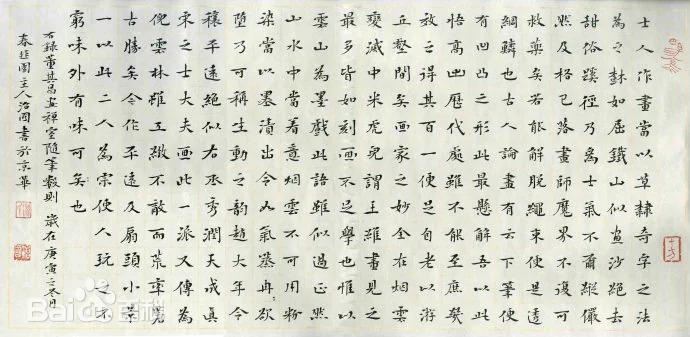 士人作畫當以草隸奇字之法
為之樹如屈鐵山似畫沙絕去
甜俗蹊徑乃為士氣不爾縱儼
然及格已落畫師魔界不復可
救藥矣若能解脫繩束便是透
網鱗也古人論畫有云下筆便
有凹凸之形此最懸解吾以此
悟高出歷代處雖不能至庶幾
效之得其百一便足自老以游
丘壑間矣画家之妙全在烟雲
變滅中米虎兒謂王維畫見之
最多皆如刻画不足學也惟以
雲山為墨戲此語雖似過正然
山水中當着意烟雲不可用粉
染當以墨漬出令如氣蒸冉々欲
墮乃可稱生動之韻趙大年令
穰平遠絕似右丞秀潤天成真
宋之士大夫画此一派又傳為
倪雲林雖工緻不敵而荒率蒼
古勝矣今作平遠及扇頭小景
一以此二人為宗使人玩之不
窮味外有味可矣也
右錄董其昌畫禪室隨筆數則 歲在庚寅之冬月
主人治國書於京華
Bai百科